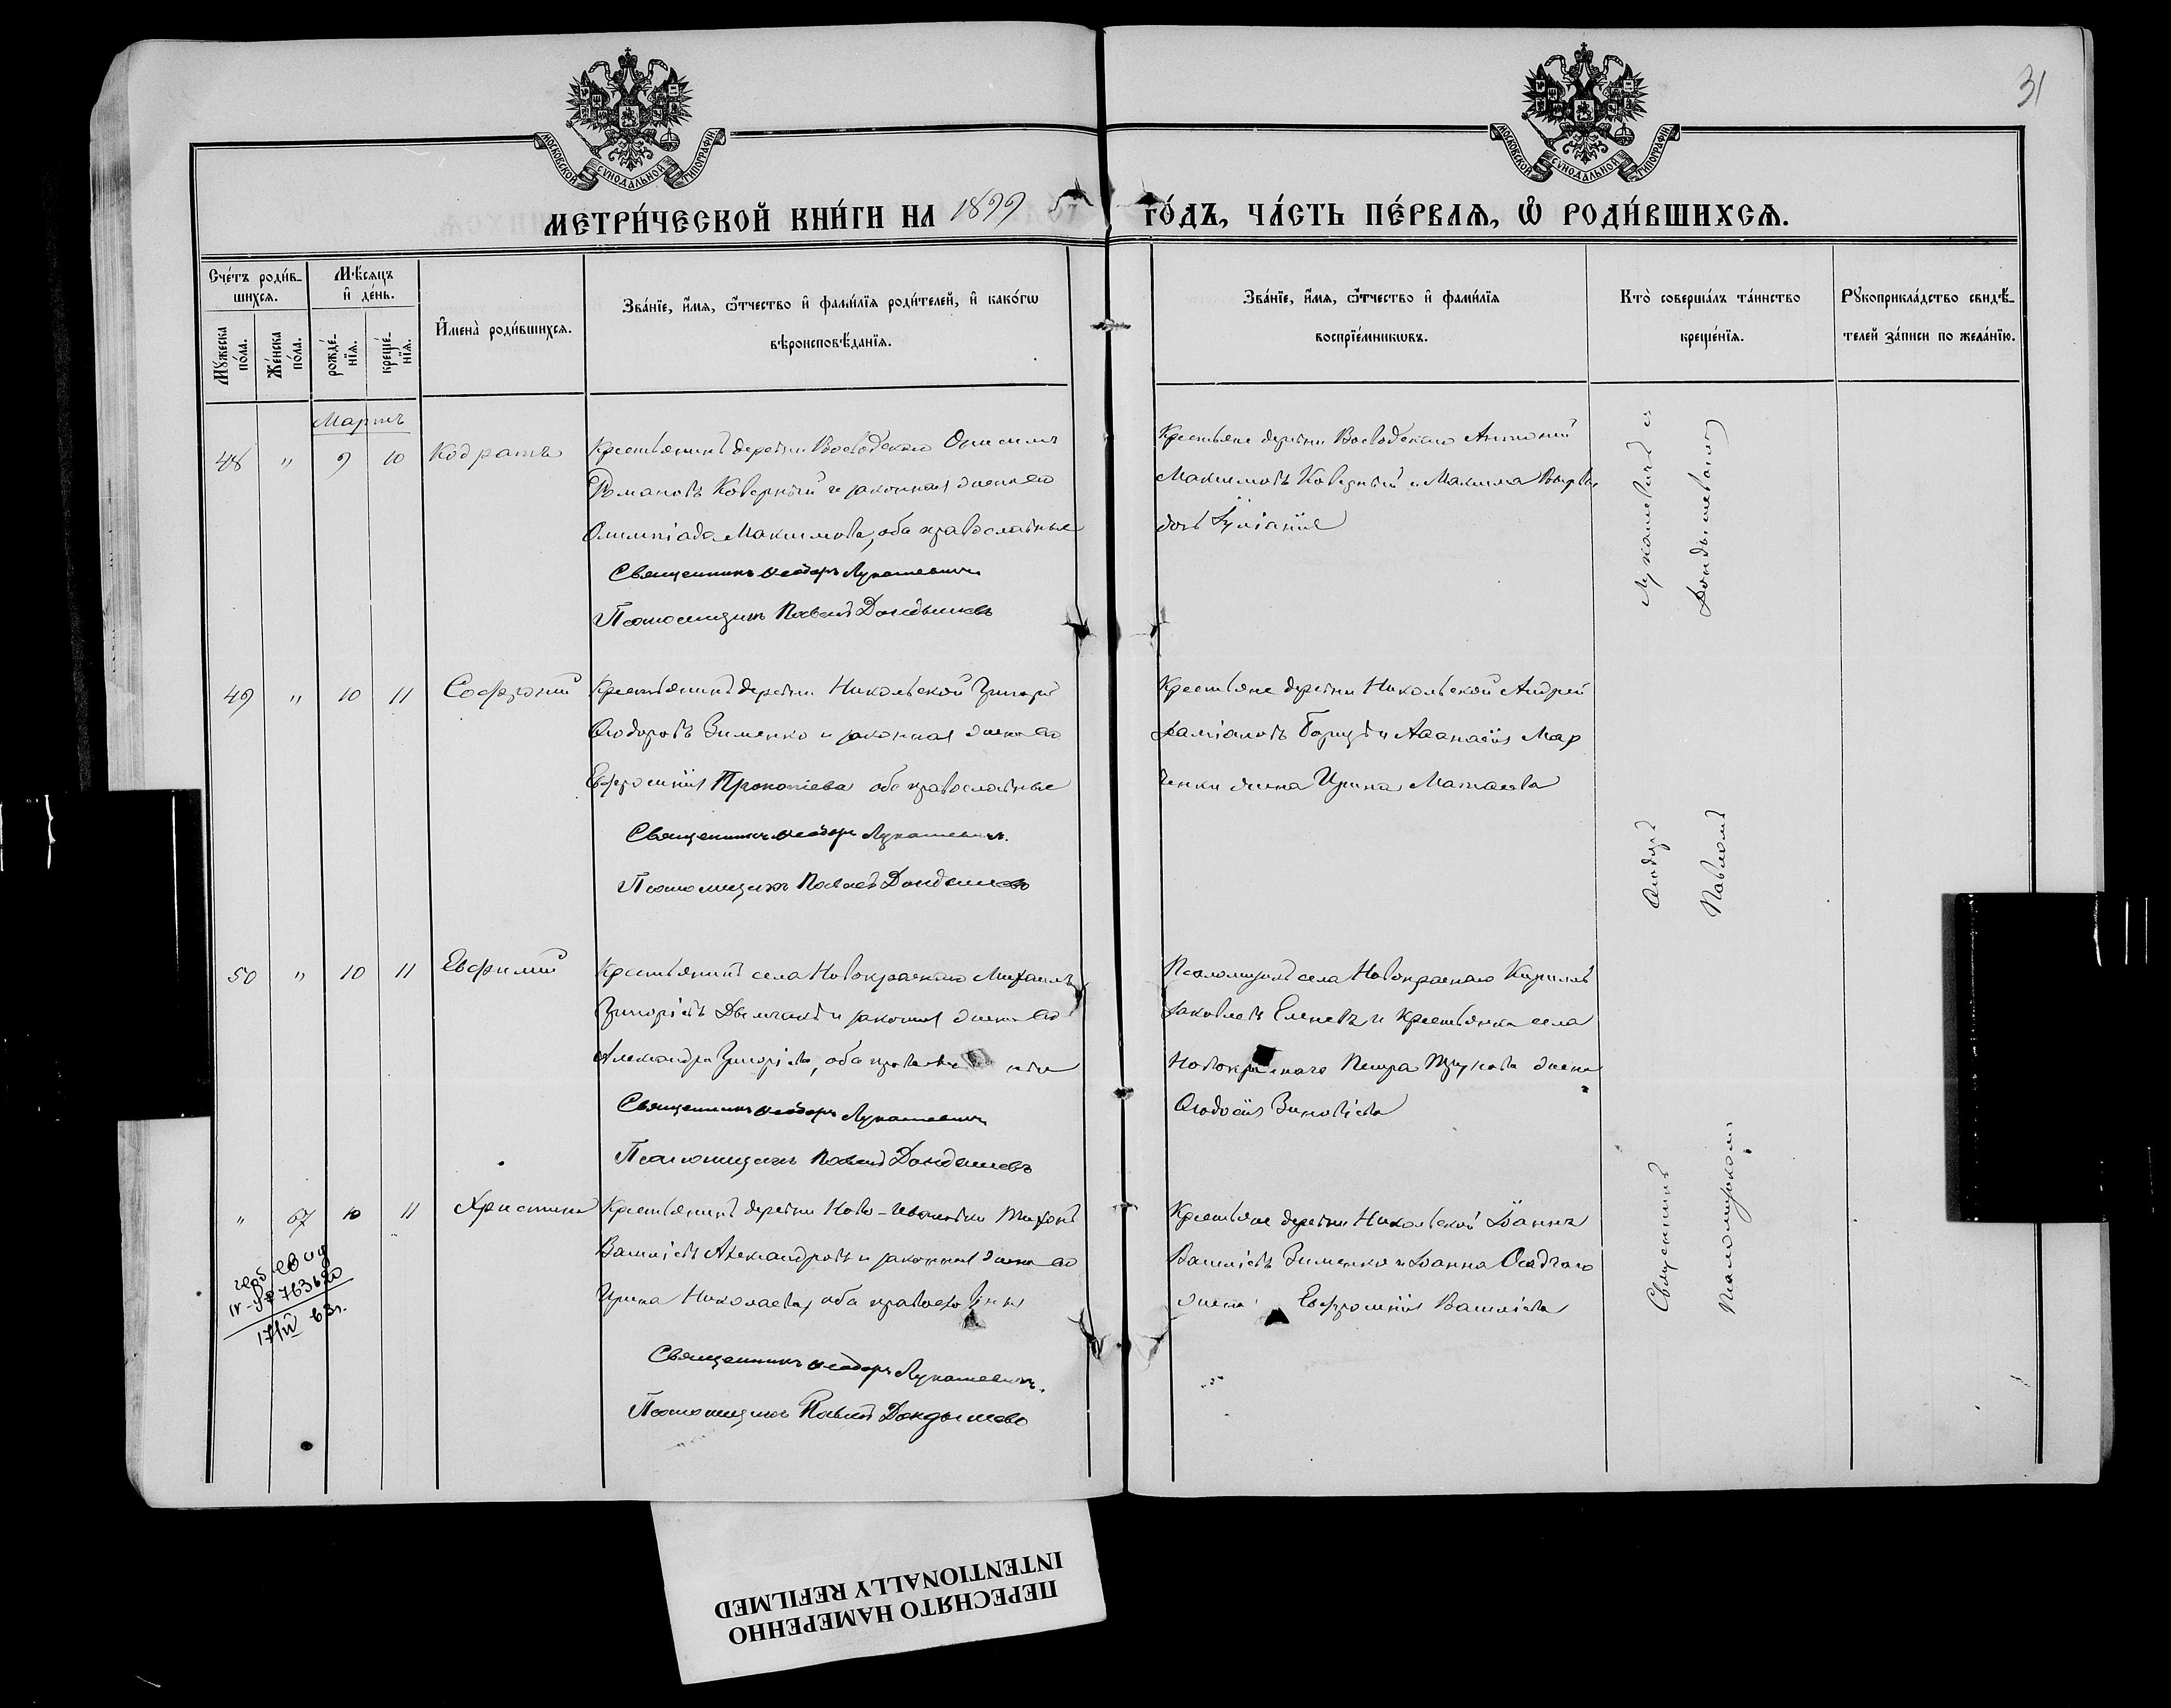 31
МОСКОВСКОЙ СѴНОДАЛЬНОЙ ТИПОГРАФІИ
МОСКОВСКОЙ СѴНОДАЛЬНОЙ ТИПОГРАФІИ
МЕТРИ́ЧЕСКОЙ КНИ́ГИ НА 1899 ГО́ДЪ, ЧА́СТЬ ПЕ́РВАЯ, Ѽ РОДИ́ВШИХСЯ.
Сче́тъ роди́в-
шихся.
Мꙋ́жеска
по́ла.
Же́нска
по́ла.
Мѣ́сяцъ
и҆ де́нь.
рожде́-
нїя.
креще́-
нїя.
И҆мена̀ роди́вшихся.
Зва́нїе, и҆́мя, ѻ҆́тчество и҆ фами́лїя роди́телей, и҆ како́гѡ
вѣроисповѣ́данїя.
Зва́нїе, и҆́мя, ѻ҆́тчество и҆ фами́лїя
воспрїе́мникѡвъ.
Кто̀ соверша́лъ та́инство
креще́нїя.
Рꙋкоприкла́дство свидѣ́-
телей за́писи по жела́нїю.
Мартъ
48 " 9 10 Кодратъ
Крестьянинъ деревни Воеводскаго Онисимъ
Романовъ Коверный и законная жена его
Олимпіада Максимова, оба православные
Священникъ Ѳеодоръ Лукашевичъ
Псаломщикъ Павелъ Дондышевъ
Крестьяне деревни Воеводскаго Антоній
Максимовъ Коверный и Максима
дочь Іуліанія
49 " 10 11 Софроній
Крестьянинъ деревни Никольской Григорій
Ѳеодоровъ Зименко и законная жена его
Евфросинія Прокопіева оба православные
Священникъ Ѳеодоръ Лукашевичъ.
Псаломщикъ Павелъ Дондышевъ
Крестьяне деревни Никольской Андрей
Даміановъ и Аѳанасія Мар
ченки жена Ирина Матѳаева
50 " 10 11 Евфимій
Крестьянинъ села Новокраснаго Михаилъ
Григоріевъ и законная жена его
Александра Григоріева, оба православные
Священникъ Ѳеодоръ Лукашевичъ
Псаломщикъ Павелъ Дондышевъ
Псаломщикъ села Новокраснаго Кириллъ
Іаковлевъ Еленевъ и крестьянка села
Новокраснаго Петра жена
Ѳеодосія Зиновіева
" 67 10 11 Христина
Крестьянинъ деревни Ново-Ивановки Тихонъ
Василіевъ Александровъ и законная жена его
Ирина Николаева, оба православны
Священникъ Ѳеодоръ Лукашевичъ.
Псаломщикъ Павелъ Дондышевъ
Крестьяне деревни Никольской Іоаннъ
Василіевъ Зименко и Іоанна Осадчаго
жена Евфросинія Василіева
Священникъ Ѳеодоръ Лукашевичъ съ
Псаломщикомъ Павломъ Дондышевымъ
763620
17/IV 63г.
ПЕРЕСНЯТО НАМЕРЕННО
INTENTIONALLY REFILMED